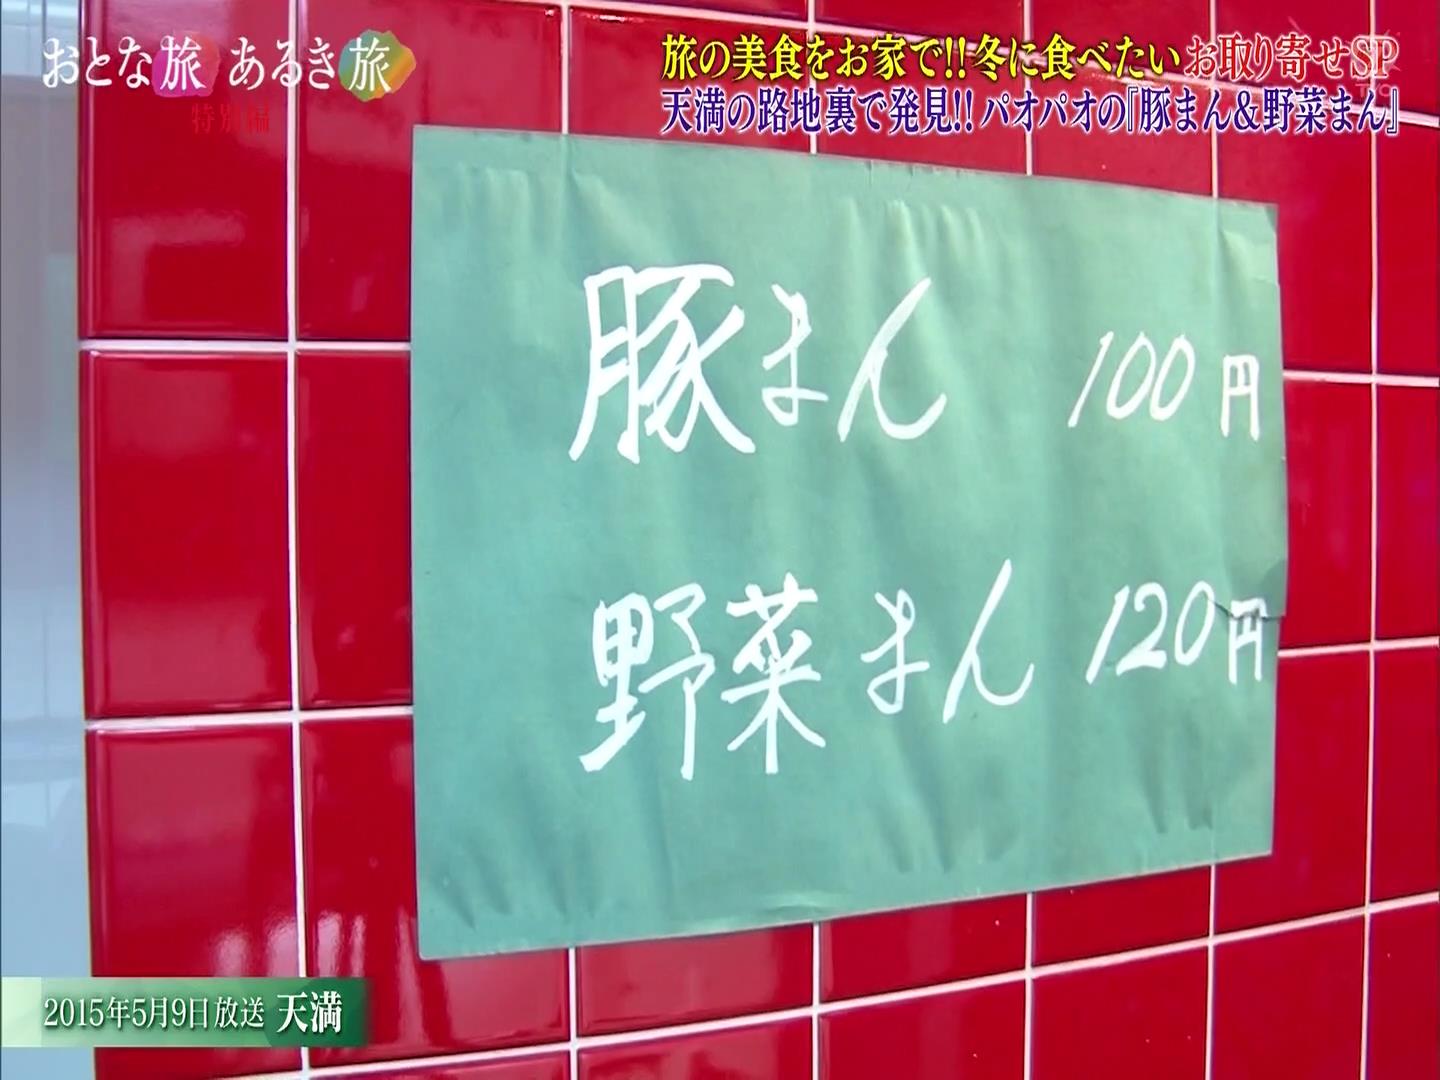 おとな旅 あるき旅
特別編
旅の美食をお家で!!冬に食べたいお取り寄せSP
天満の路地裏で発見!! パオパオの『豚まん&野菜まん』
豚まん 100円
野菜まん 120円
2015年5月9日放送 天満